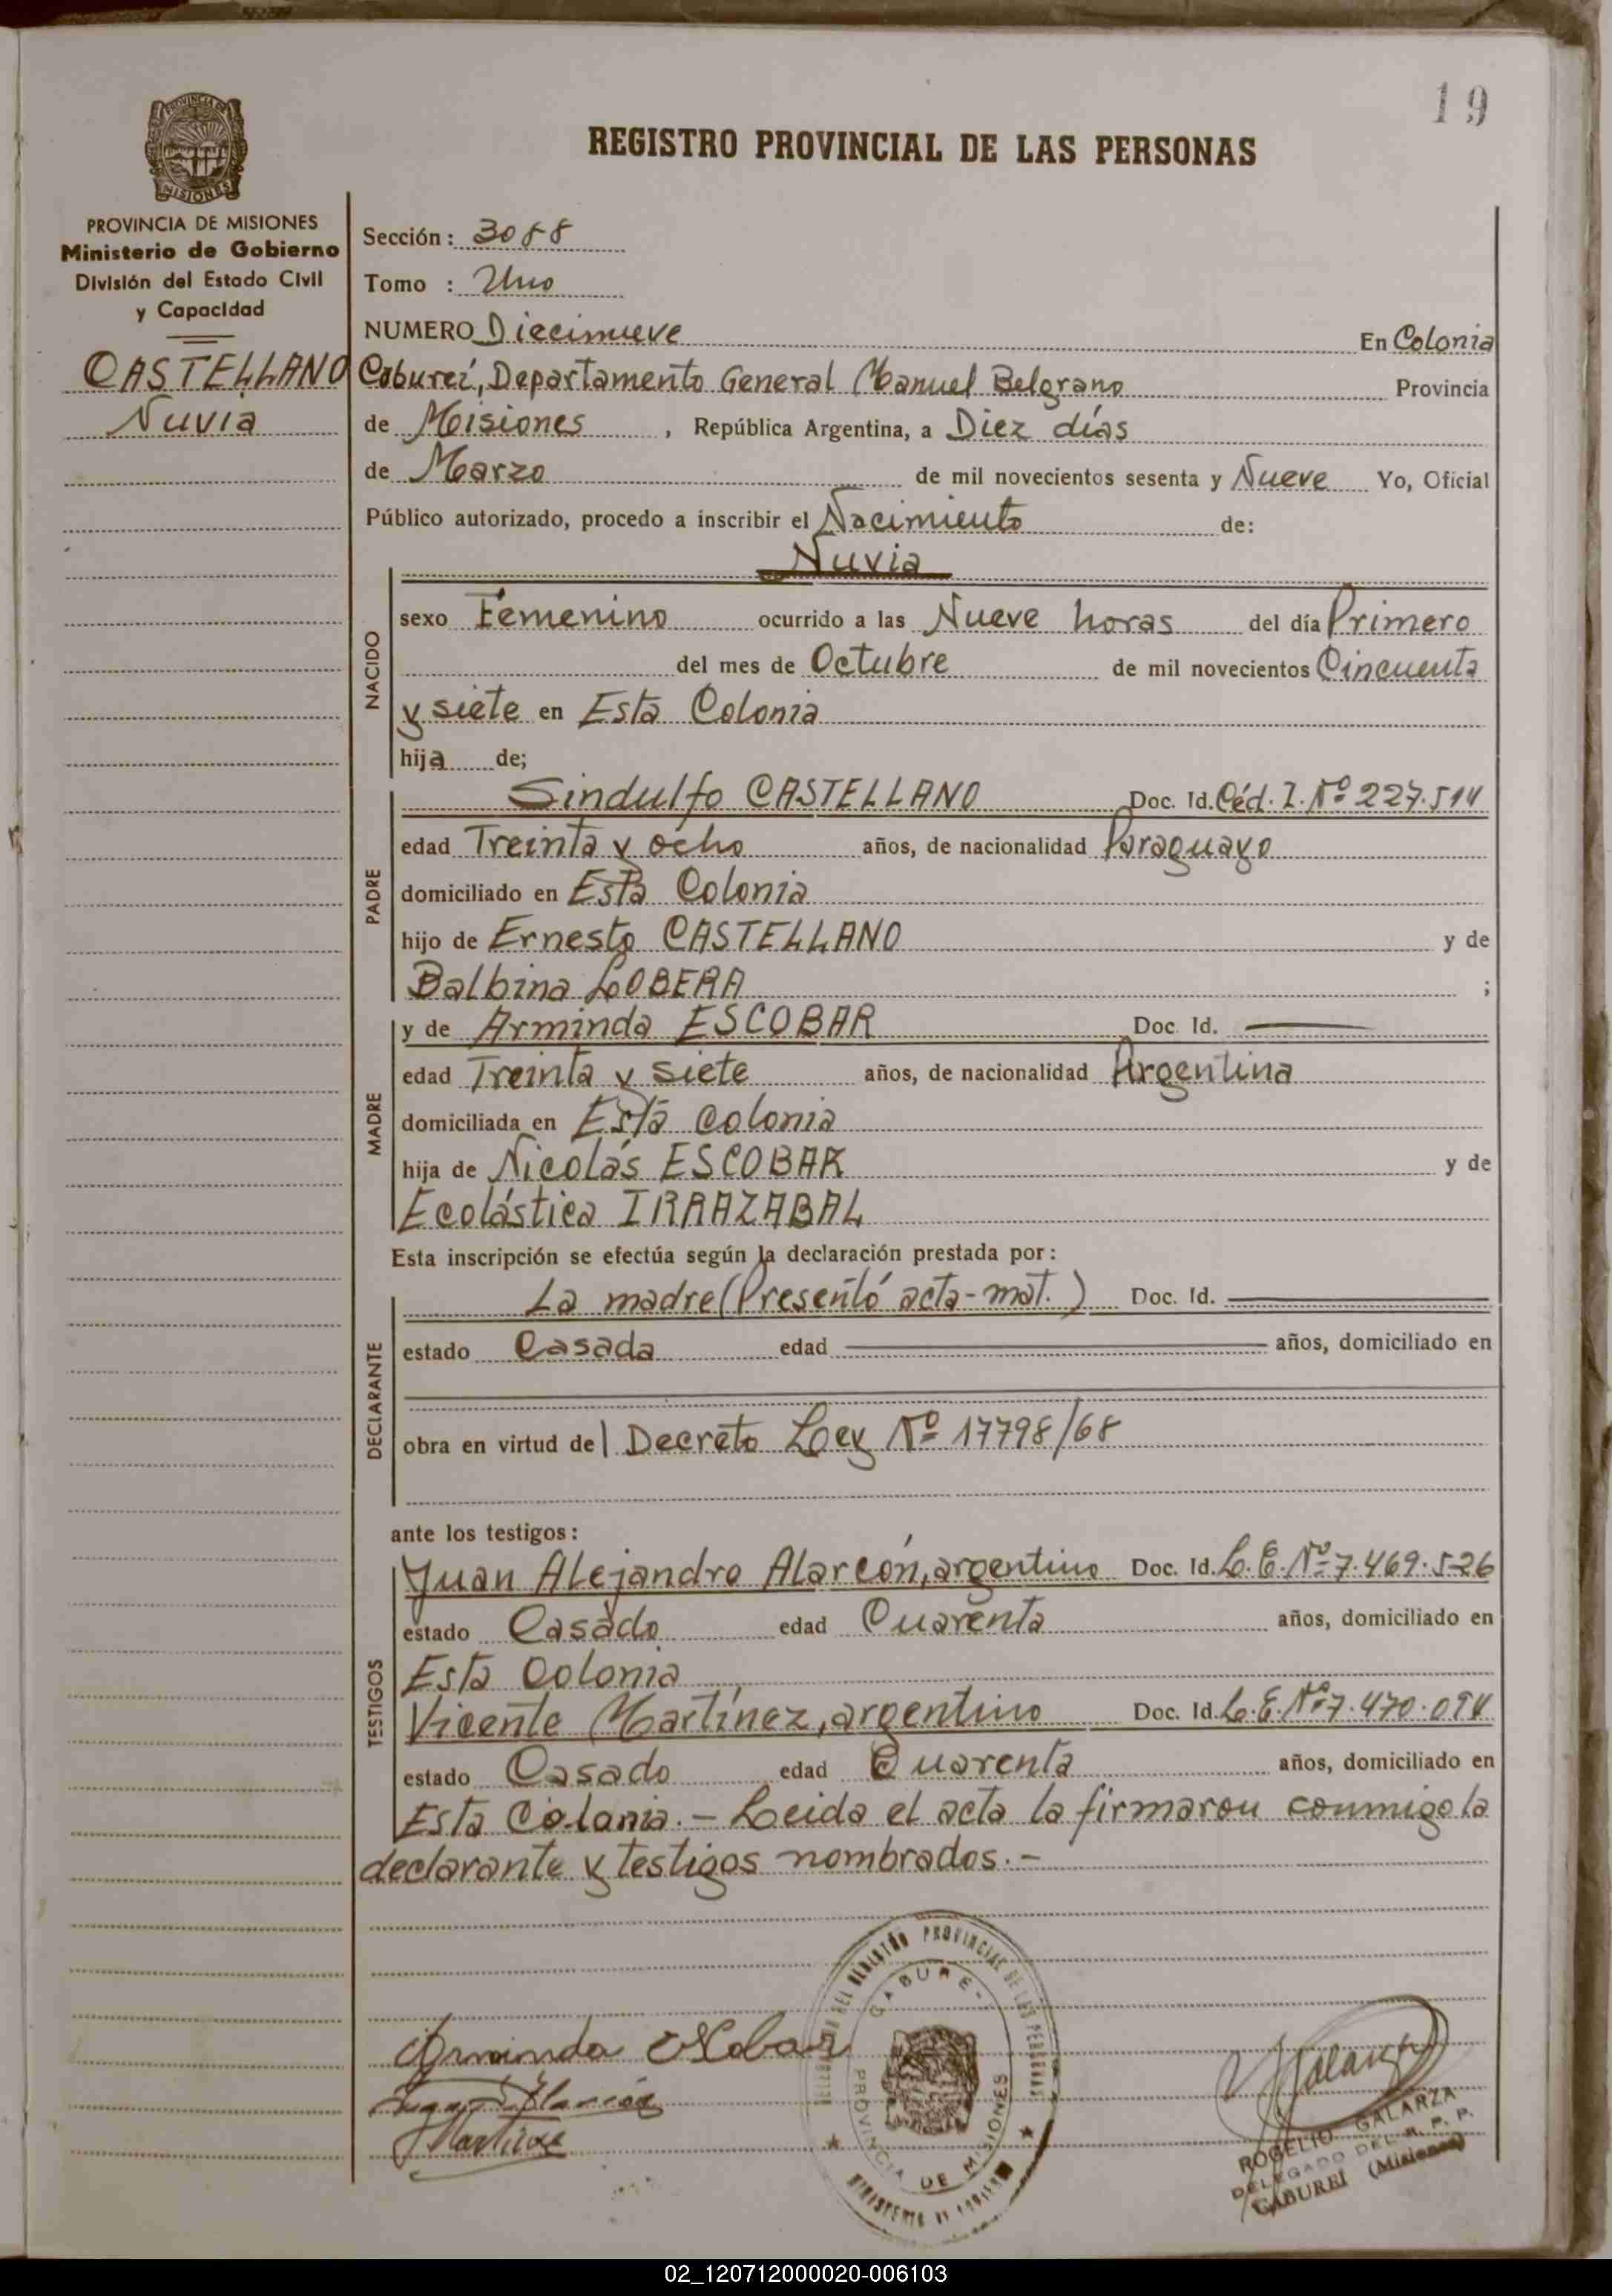 19
REGISTRO PROVINCIAL DE LAS PERSONAS
PROVINCIA DE MISIONES
Ministerio de Gobierno
División del Estado Civil
y Capacidad
CASTELLANO
Nuvia
Sección: 3088
Tomo : Uno
NUMERO Diecinueve En Colonia
Caburei, Departamento General Manuel Belgrano Provincia
de Misiones , República Argentina, a Diez días
de Marzo de mil novecientos sesenta y Nueve Yo, Oficial
Público autorizado, procedo a inscribir el Nacimiento de:
Nuvia
NACIDO
sexo Femenino ocurrido a las Nueve horas del día Primero
del mes de Octubre de mil novecientos Cincuenta
y siete en Esta Colonia
hija de;
PADRE
Sindulfo CASTELLANO Doc. Id. Céd. I. Nº 227.514
edad Treinta y ocho años, de nacionalidad Paraguayo
domiciliado en Esta Colonia
hijo de Ernesto CASTELLANO y de
Balbina LOBERA ;
MADRE
y de Arminda ESCOBAR Doc. Id.
edad Treinta y siete años, de nacionalidad Argentina
domiciliada en Esta colonia
hija de Nicolás ESCOBAR y de
Ecolástica IRRAZABAL
Esta inscripción se efectúa según la declaración prestada por:
DECLARANTE
La madre (Presentó acta-mat.) Doc. Id.
estado Casada edad años, domiciliado en
obra en virtud del Decreto Ley Nº 17798/68
ante los testigos:
TESTIGOS
Juan Alejandro Alarcón, argentino Doc. Id. L.E. Nº 7.469.526
estado Casado edad Cuarenta años, domiciliado en
Esta Colonia
Vicente Martínez, argentino Doc. Id. L.E. Nº 7.470.094
estado Casado edad Cuarenta años, domiciliado en
Esta Colonia.- Leida el acta la firmaron conmigo la
declarante y testigos nombrados.-
Arminda Escobar
Juan Alarcón
Martinez
PROVINCIAL DE LAS PERSONAS
CABURE-
PROVINCIA DE MISIONES
Galarza
ROGELIO GALARZA
DELEGADO DEL R. P. P.
CABUREI (Misiones)
02_120712000020-006103